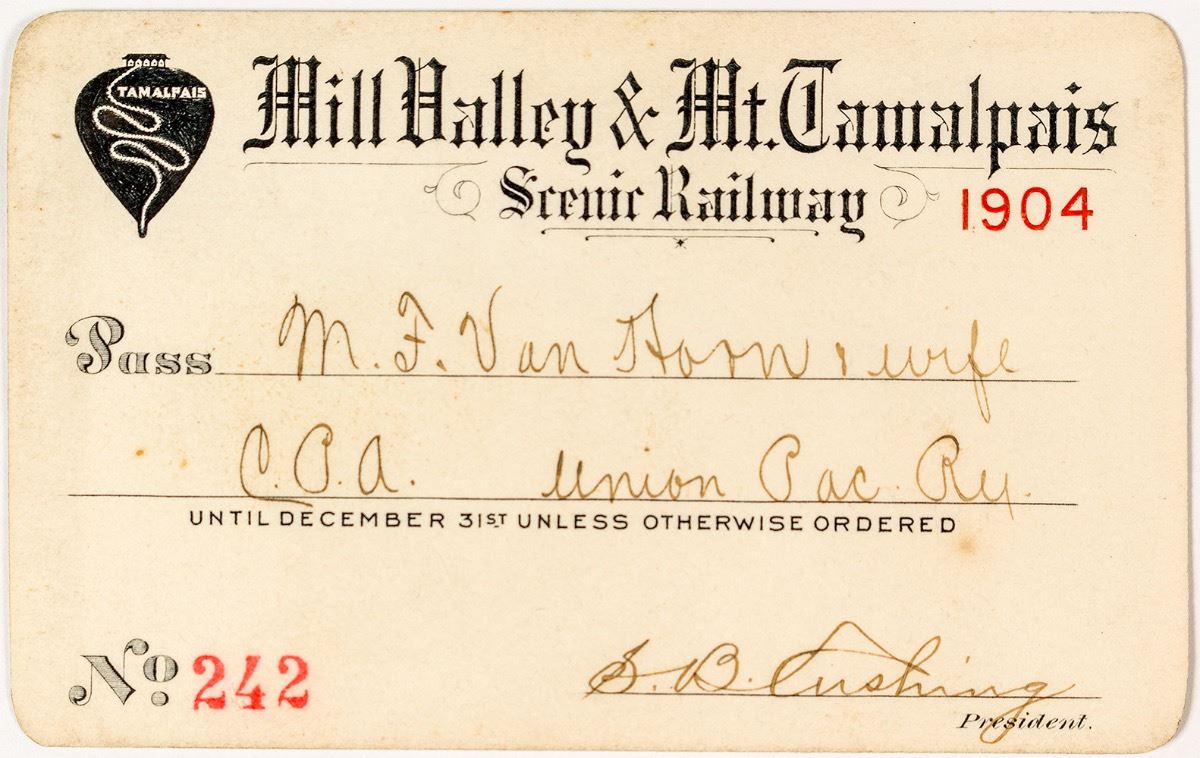 TAMALPAIS
Mill Valley & Mt. Tamalpais
Scenic Railway
1904
Pass M. F. Van Hoorn & wife
C. P. A. Union Pac. Ry.
UNTIL DECEMBER 31ST UNLESS OTHERWISE ORDERED
No 242
S. B. Cushing
President.